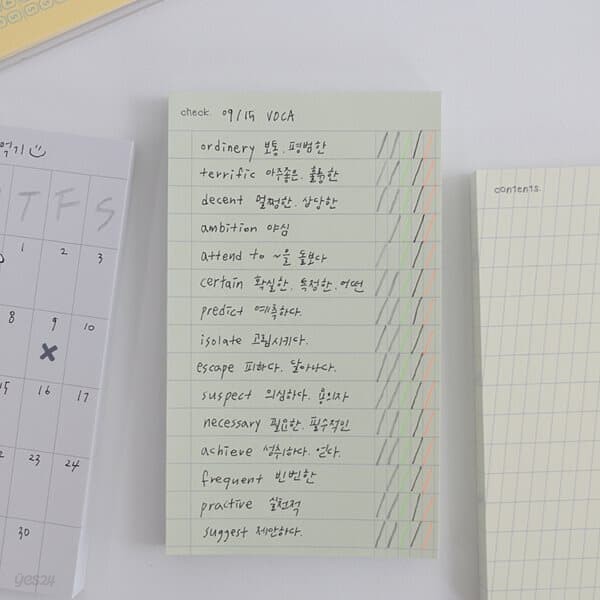 check. 09/15 VOCA
ordinery 보통, 평범한
terrific 아주좋은, 훌륭한
decent 멀쩡한, 상당한
ambition 야심
attend to ~을 돌보다
certain 확실한, 특정한, 어떤
predict 예측하다.
isolate 고립시키다.
escape 피하다. 달아나다.
suspect 의심하다. 용의자
necessary 필요한, 필수적인
achieve 성취하다. 얻다.
frequent 빈번한
practive 실천적
suggest 제안하다.
T F S
1 2 3
8 9 10
15 16 17
22 23 24
30
contents.
yes24